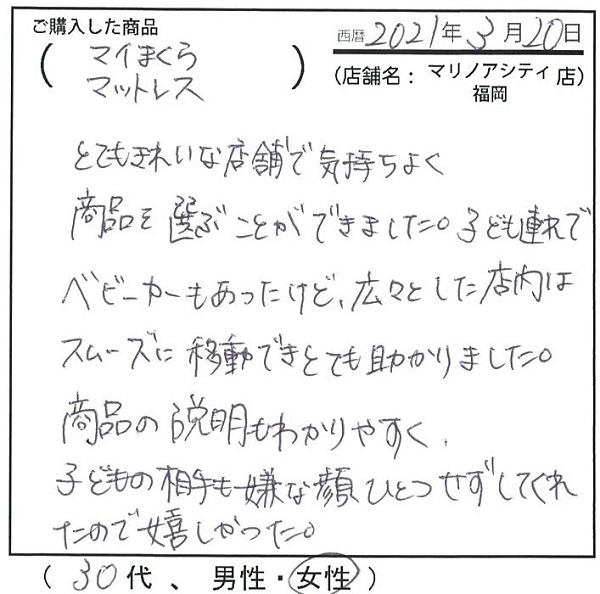 ご購入した商品
西暦 2021年 3月20日
( マイまくら
マットレス )
(店舗名： マリノアシティ 店)
福岡
とてもきれいな店舗で気持ちよく
商品を選ぶことができました。子ども連れで
ベビーカーもあったけど、広々とした店内は
スムーズに移動できとても助かりました。
商品の説明もわかりやすく、
子どもの相手も嫌な顔ひとつせずしてくれ
たので嬉しかった。
( 30代 、 男性・女性 )